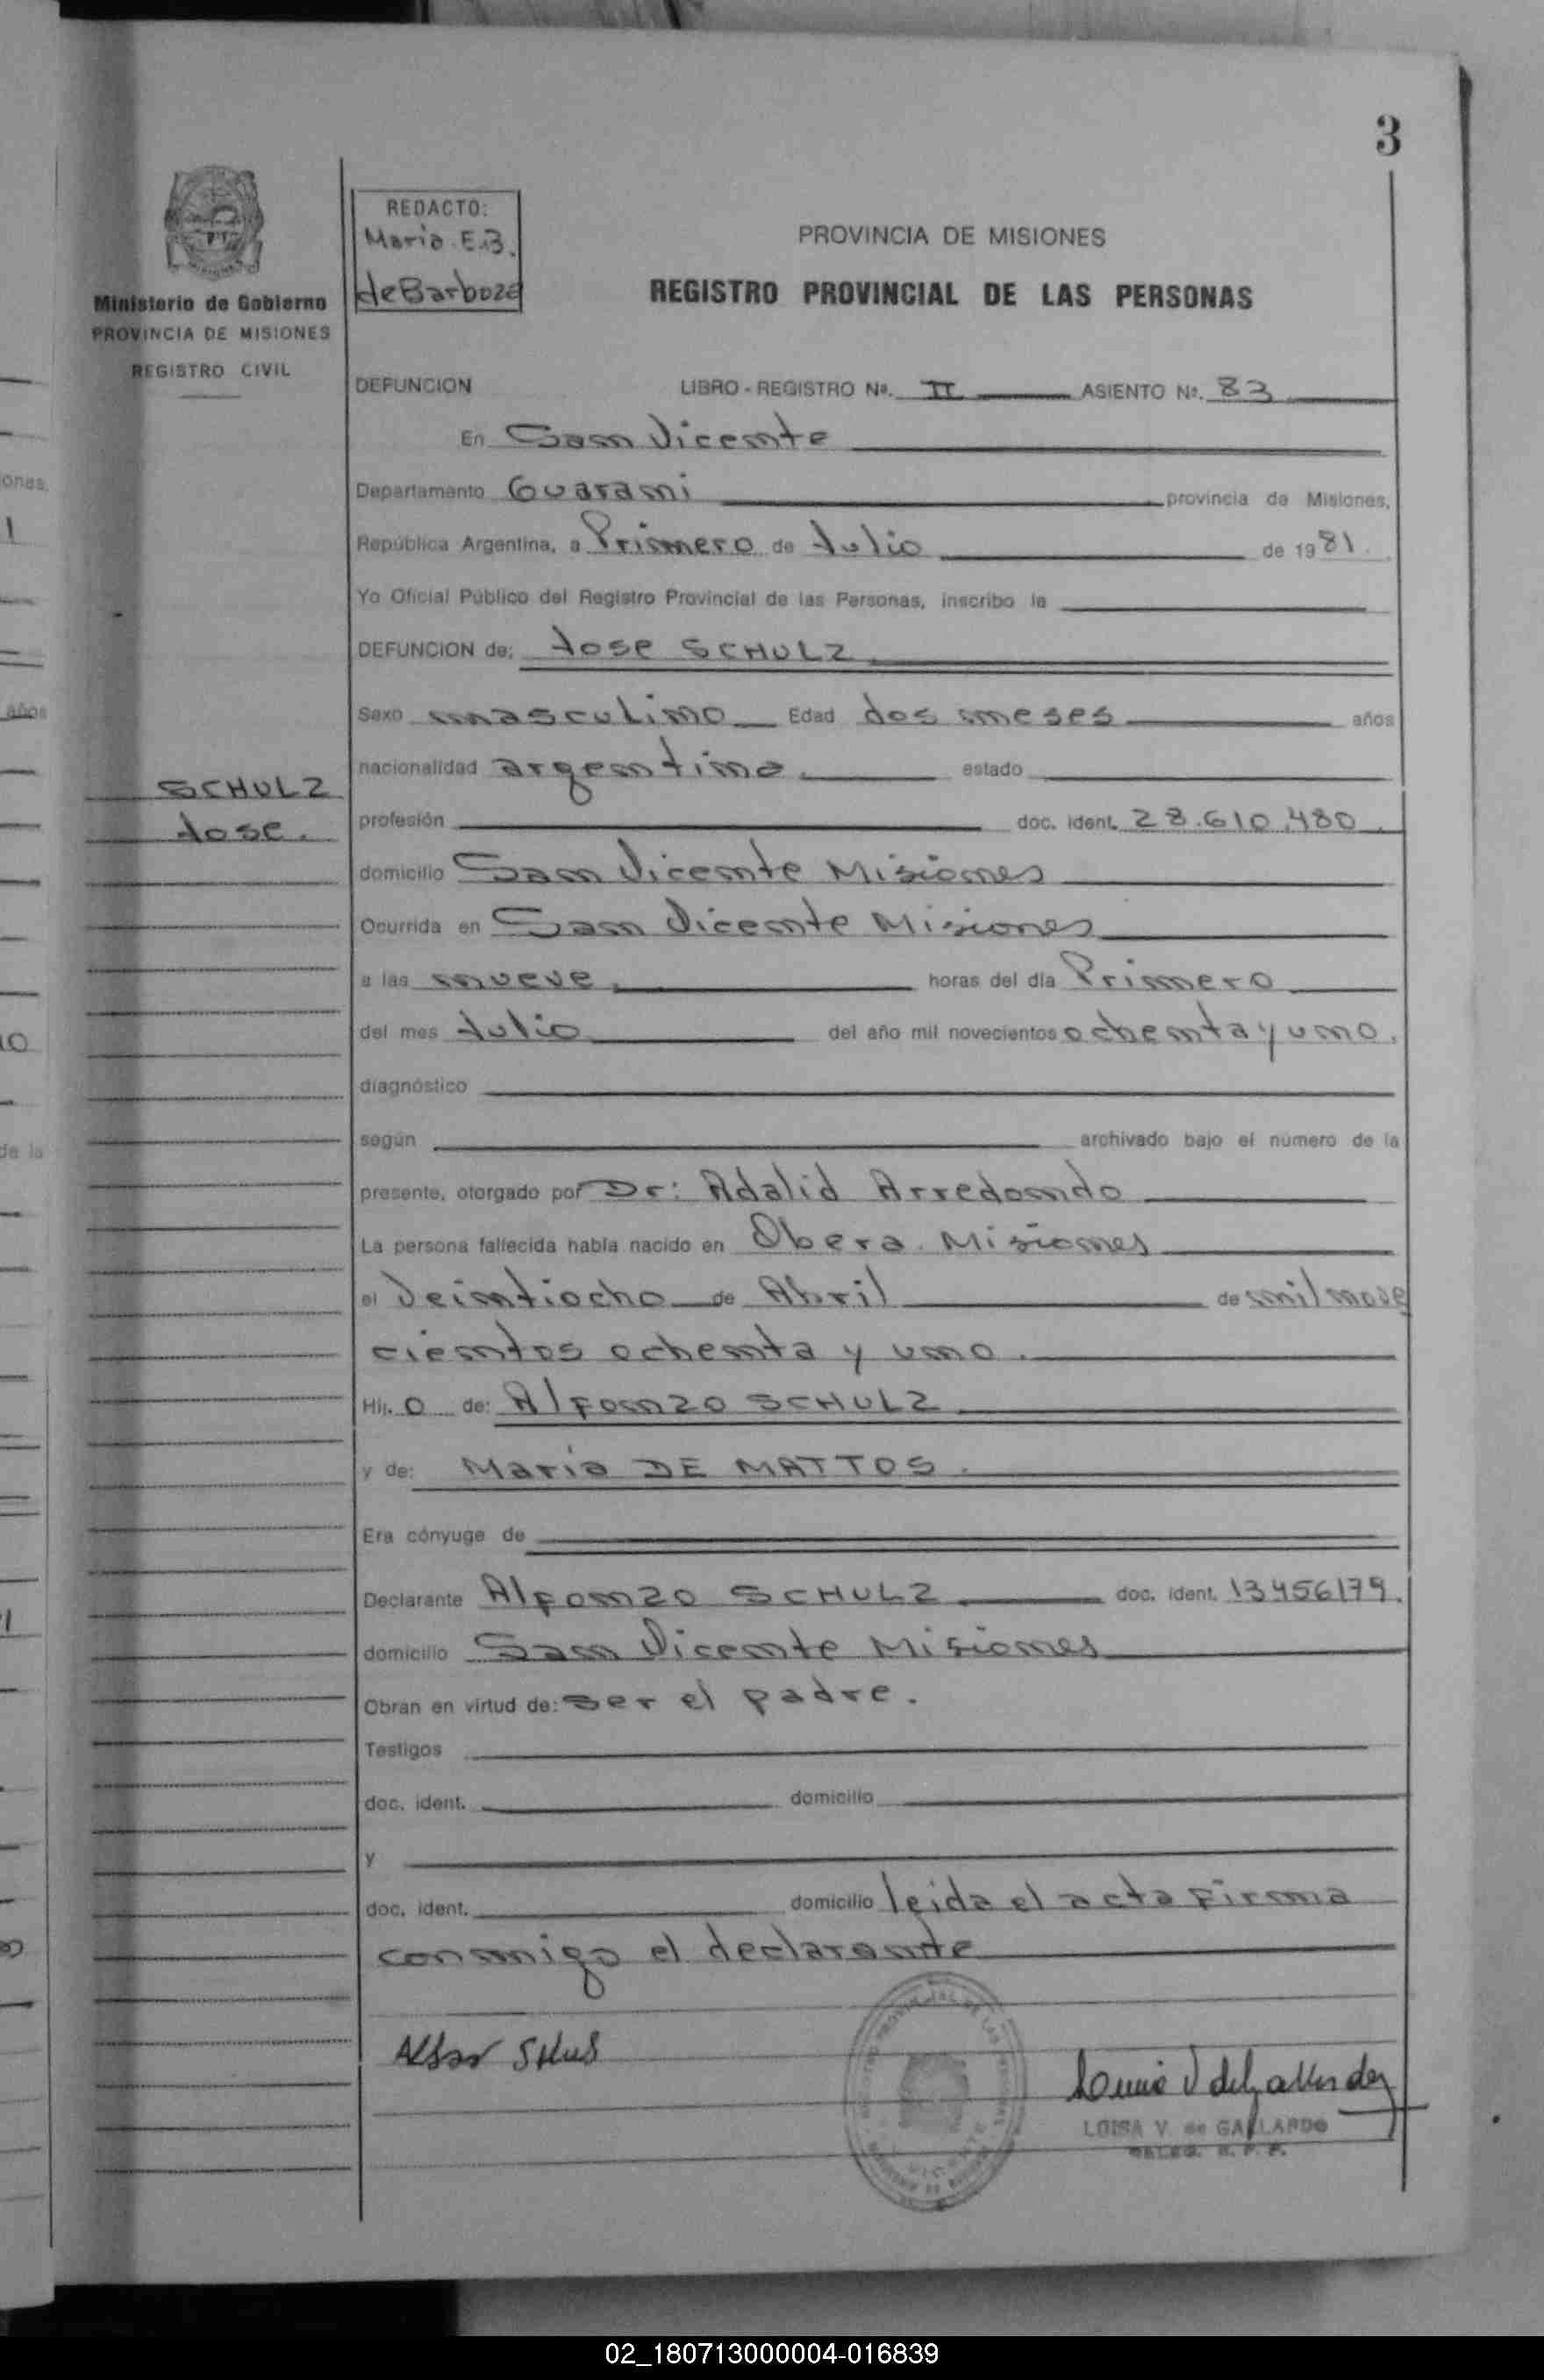 3
REDACTO:
Maria E.B.
de Barboza
PROVINCIA DE MISIONES
REGISTRO PROVINCIAL DE LAS PERSONAS
Ministerio de Gobierno
PROVINCIA DE MISIONES
REGISTRO CIVIL
DEFUNCION LIBRO - REGISTRO Nº. II ASIENTO Nº. 83
En San Vicente
Departamento Guarani provincia de Misiones,
República Argentina, a Primero de Julio de 1981.
Yo Oficial Público del Registro Provincial de las Personas, inscribo la
DEFUNCION de: Jose SCHULZ
Sexo masculino Edad dos meses años
nacionalidad argentina. estado
SCHULZ
Jose.
profesión doc. ident. 28.610.480.
domicilio San Vicente Misiones
Ocurrida en San Vicente Misiones
a las nueve. horas del día Primero
del mes Julio del año mil novecientos ochenta y uno.
diagnóstico
según archivado bajo el número de la
presente, otorgado por Dr: Adalid Arredondo
La persona fallecida había nacido en Obera. Misiones
el Veintiocho de Abril de mil nove
cientos ochenta y uno.
Hij. o de: Alfonzo SCHULZ
y de: Maria DE MATTOS.
Era cónyuge de
Declarante Alfonzo SCHULZ. doc. ident. 13456179.
domicilio San Vicente Misiones
Obran en virtud de: ser el padre.
Testigos
doc. ident. domicilio
y
doc. ident. domicilio leida el acta firma
conmigo el declarante
LUISA V. de GALLARDO
DELEG. R. P. P.
ones,
1
años
10
de la
1
02_180713000004-016839